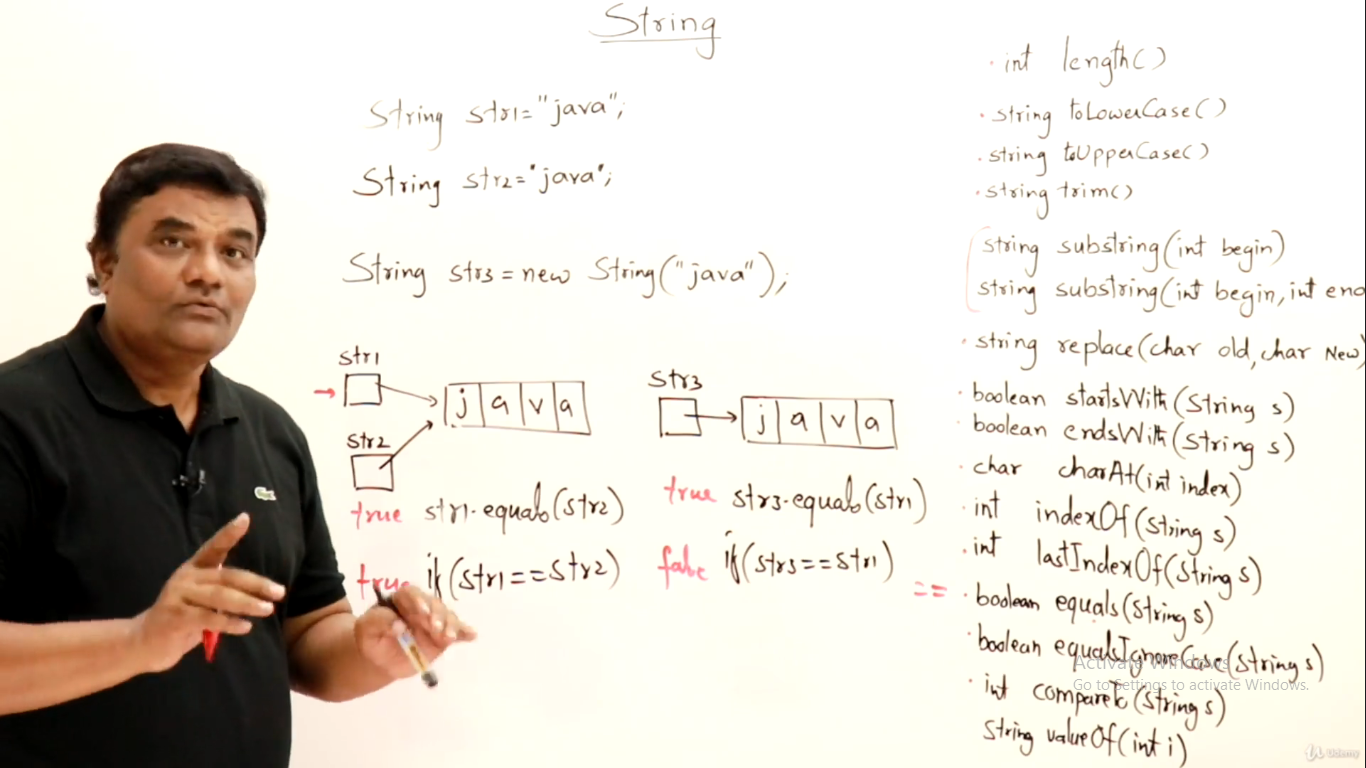 String
String str1="java";
String str2="java";
String str3=new String("java");
str1
j a v a
str2
true str1.equals(str2)
true if(str1==str2)
str3
j a v a
true str3.equals(str1)
false if(str3==str1)
· int length()
· string toLowerCase()
· string toUpperCase()
· string trim()
string substring(int begin)
string substring(int begin, int end
· string replace(char old, char New)
· boolean startsWith(String s)
· boolean endsWith(String s)
· char charAt(int index)
· int indexOf(String s)
· int lastIndexOf(String s)
== · boolean equals(String s)
· boolean equalsIgnoreCase(String s)
· int compareTo(String s)
String valueOf(int i)
Activate Windows
Go to Settings to activate Windows.
Udemy